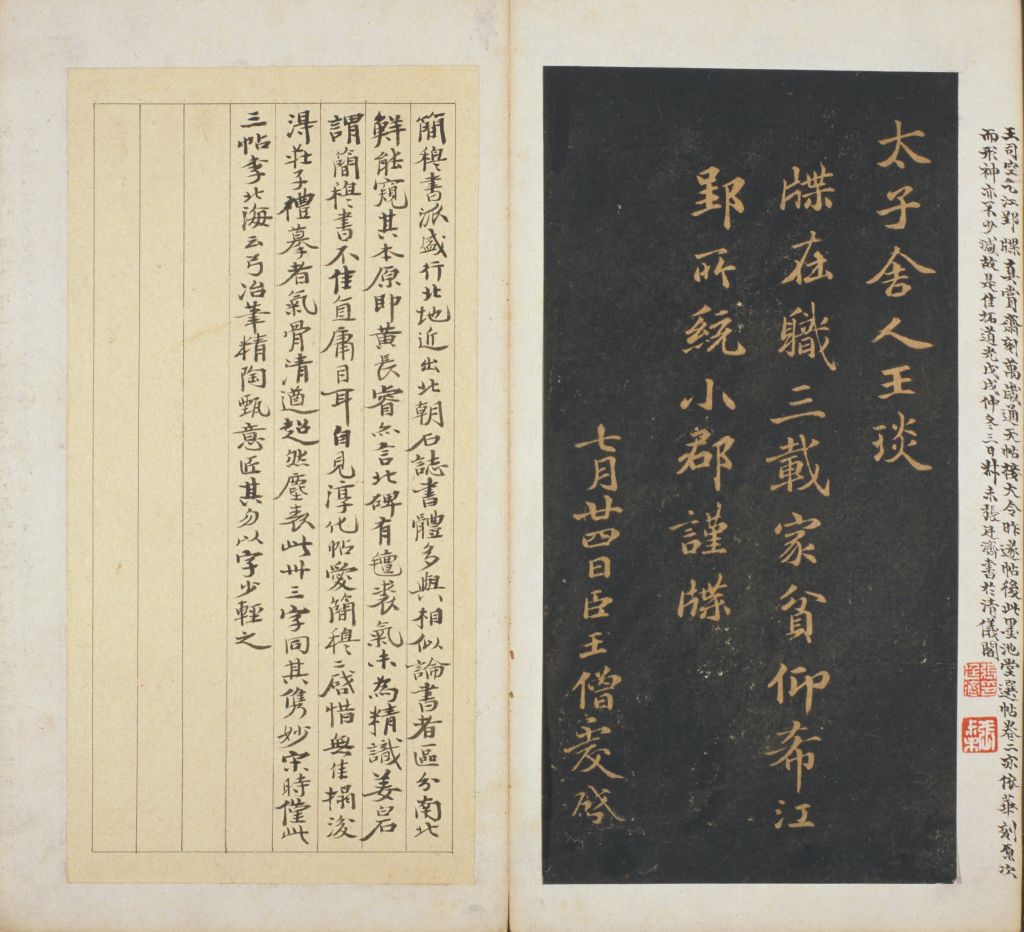 王司空九江郢牒真賞齋刻萬歲通天帖接大令昨遂帖後此墨池堂選帖卷二亦依華刻原次
而形神亦不少減故是佳拓道光戊戌仲冬三日叔未張廷濟書於清儀閣
張廷濟
張叔未
太子舍人王琰
牒在職三載家貧仰希江
郢所統小郡謹牒
七月廿四日臣王僧虔啓
簡穆書派盛行北地近出北朝石誌書體多與相似論書者區分南北
鮮能窺其本原即黃長睿亦言北碑有氊裘氣未為精識姜白石
謂簡穆書不佳直庸目耳自見淳化帖愛簡穆二啓惜無佳搨後
得莊子禮摹者氣骨清遒超然塵表此卅三字同其雋妙宋時僅此
三帖李北海云弓冶筆精陶甄意匠其勿以字少輕之